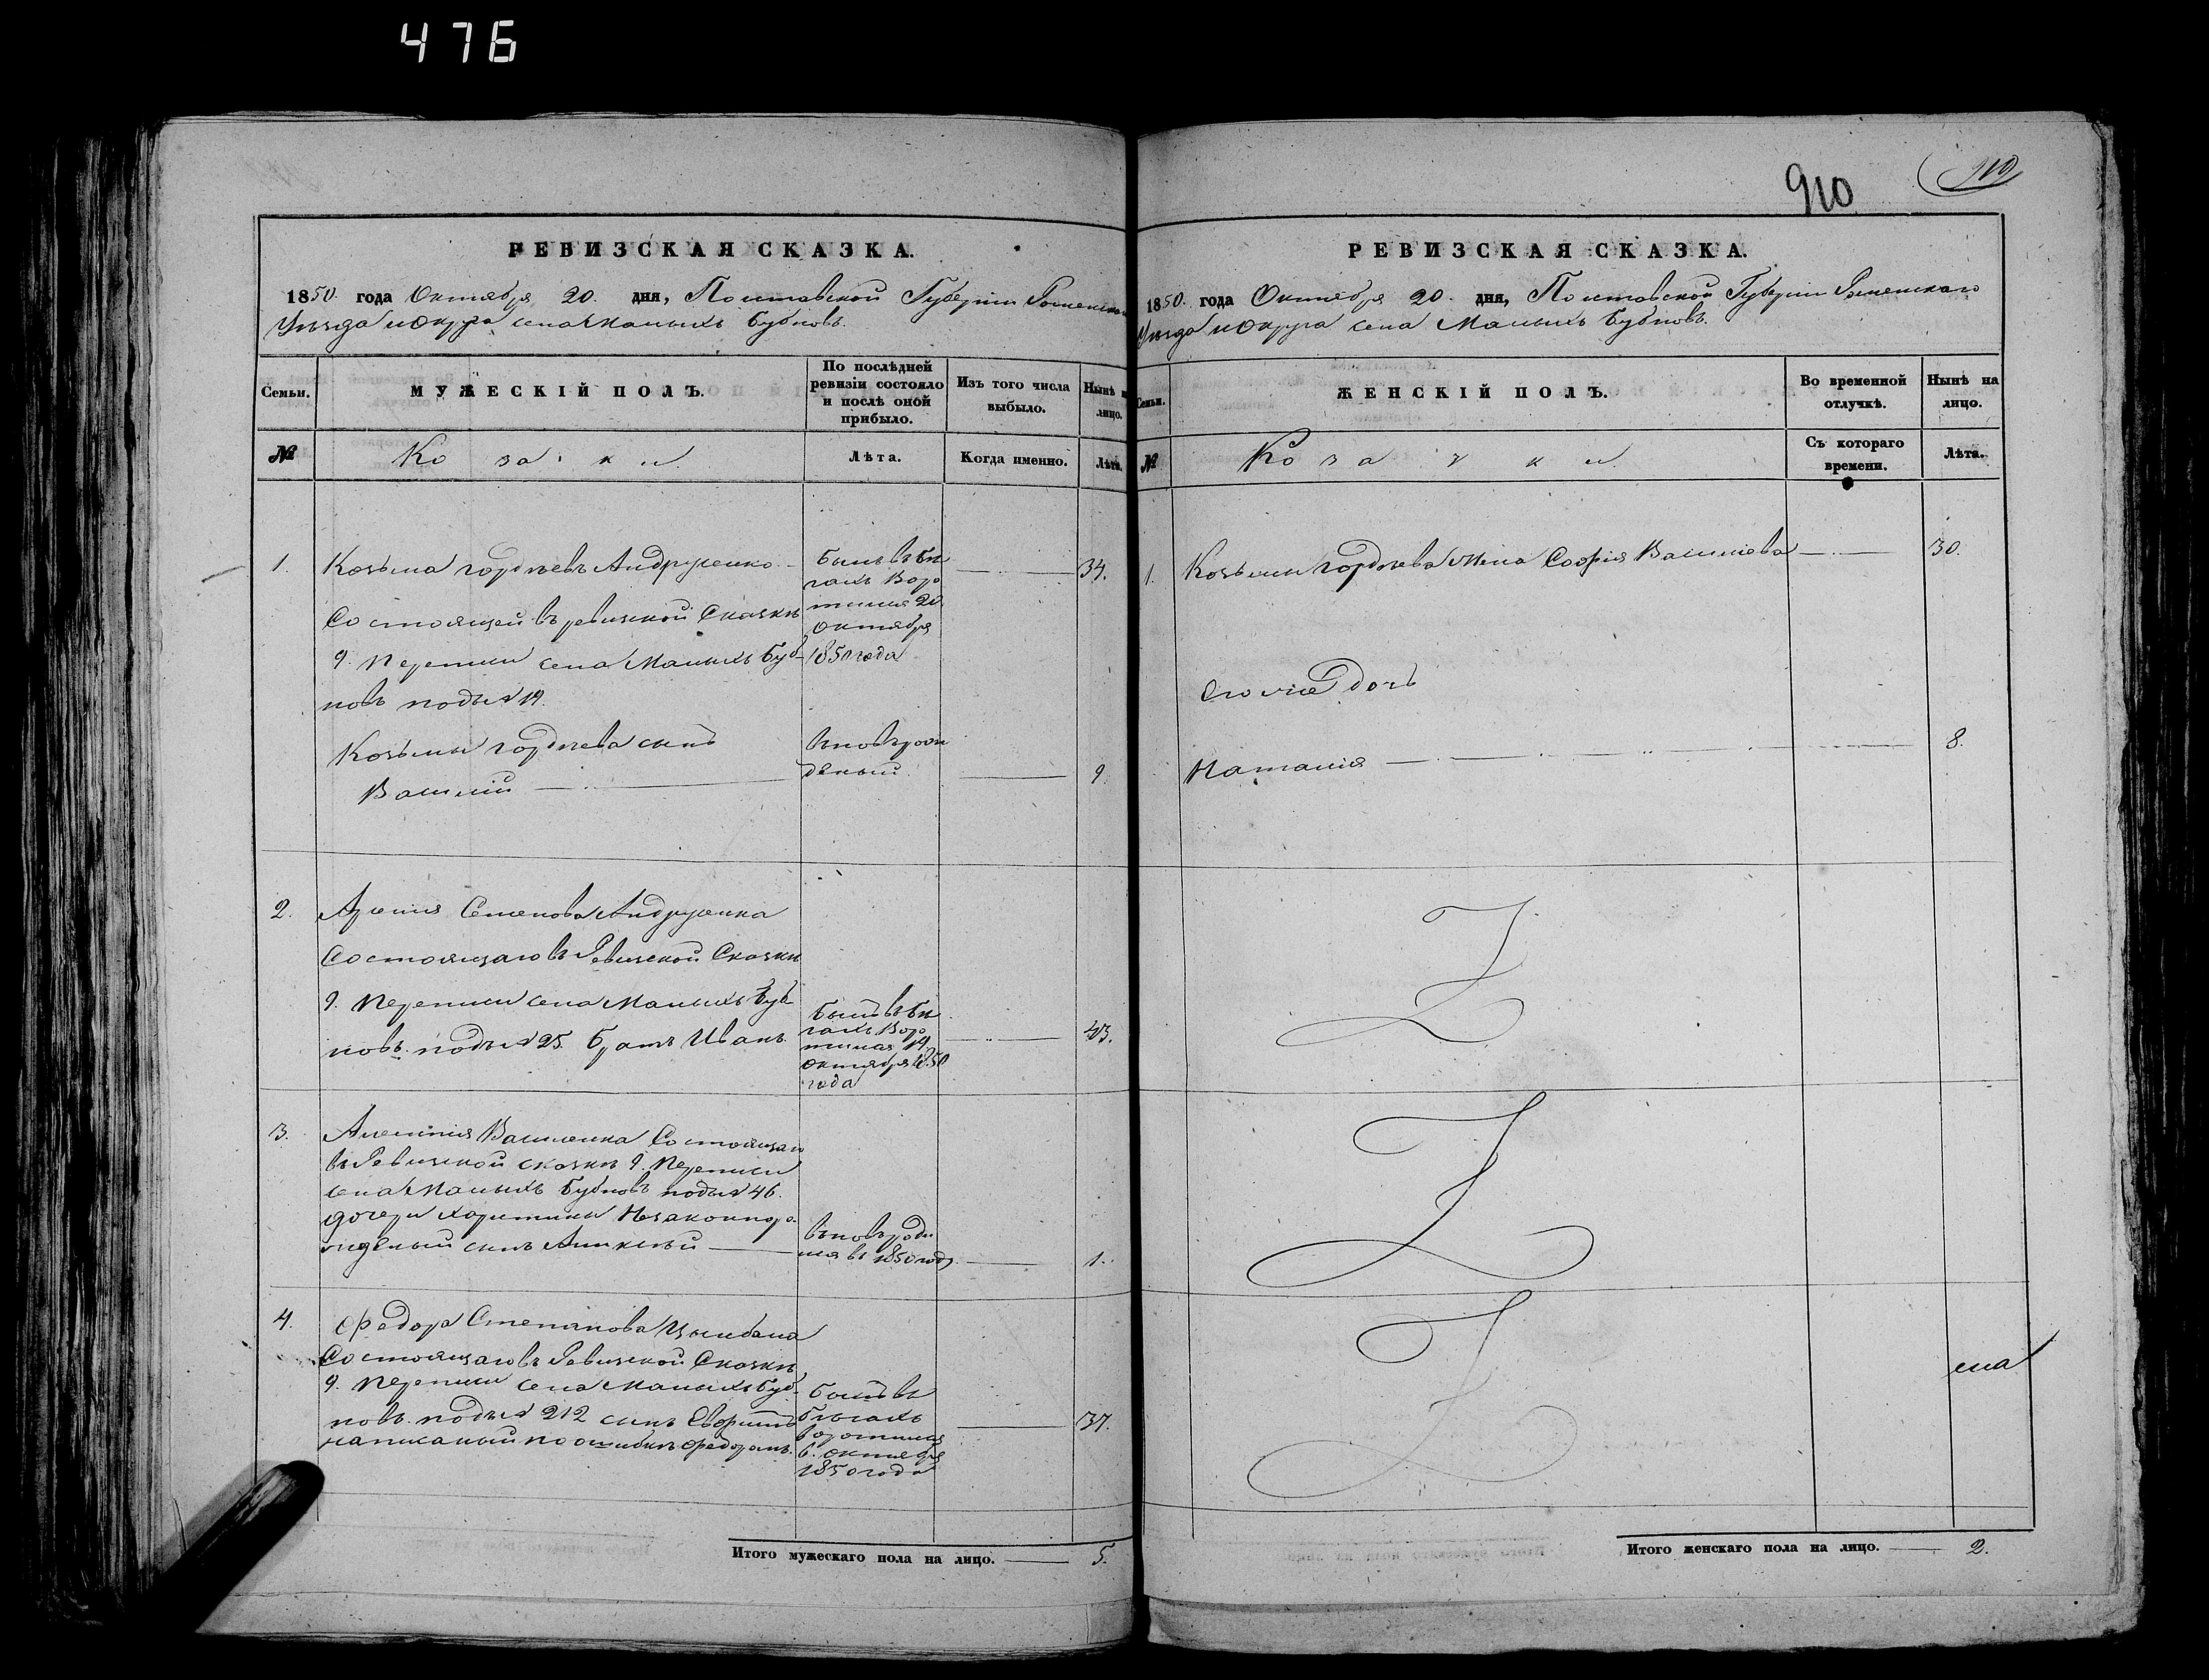 476
910
910
РЕВИЗСКАЯ СКАЗКА.
1850. года Октября 20. дня, Полтавской Губерніи Роменскаго
Уѣзда и Округа села Малыхъ Бубновъ.
Семьи.
МУЖЕСКІЙ ПОЛЪ.
По послѣдней ревизіи состояло и послѣ оной прибыло.
Изъ того числа выбыло.
Нынѣ на лицо.
№
Козаки.
Лѣта.
Когда именно.
Лѣта.
1.
Козьма Гордѣевъ Андрущенко
Состоящей въ ревизской Сказкѣ
9. Переписи села Малыхъ Буб-
новъ подъ № 19.
былъ въ бѣ
гахъ Воро
тился 20
Октября
1850 года
34.
Козьмы Гордѣева сынъ
Василій
вновь рож
деный
9.
2.
Семенова Андрущенка
Состоящаго въ Ревизской Сказки
9. Переписи села Малыхъ Буб-
новъ подъ № 25. братъ Иванъ.
былъ въ бѣ
гахъ Воро
тился 19
Октября 1850
года
43.
3.
Василенка Состоящаго
въ Ревизской сказкѣ 9. Переписи
села Малыхъ Бубновъ подъ № 46.
дочери Харитины Незаконноро-
жденый сынъ Алексѣй
вновь роди
лся въ 1850 году
1.
4.
Федора Степанова Цымбала
Состоящаго въ Ревизской Сказкѣ
9. Переписи села Малыхъ Буб-
новъ подъ № 212 сынъ
написаный по ошибкѣ Федоромъ.
былъ въ
бѣгахъ
воротился
в. октября
1850 года
37.
Итого мужескаго пола на лицо. 5.
РЕВИЗСКАЯ СКАЗКА.
1850. года Октября 20. дня, Полтавской Губерніи Роменскаго
Уѣзда и Округа села Малыхъ Бубновъ.
Семьи.
ЖЕНСКІЙ ПОЛЪ.
Во временной отлучкѣ.
Нынѣ на лицо.
№
Козачки.
Съ котораго времени.
Лѣта.
1.
Козьмы Гордѣева жена Софія Василіева
30.
Его же дочь
Наталія
8.
Итого женскаго пола на лицо. 2.